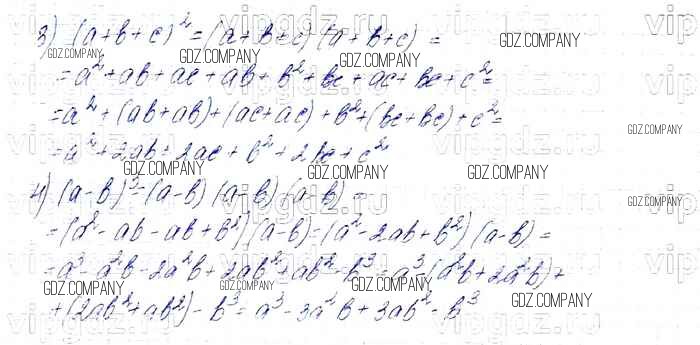 3) (a+b+c)² = (a+b+c)(a+b+c) =
= a² + ab + ac + ab + b² + bc + ac + bc + c² =
= a² + (ab+ab) + (ac+ac) + b² + (bc+bc) + c² =
= a² + 2ab + 2ac + b² + 2bc + c²
4) (a-b)³ = (a-b)(a-b)(a-b) =
= (a² - ab - ab + b²)(a-b) = (a² - 2ab + b²)(a-b) =
= a³ - a²b - 2a²b + 2ab² + ab² - b³ = a³ - (a²b + 2a²b) +
+ (2ab² + ab²) - b³ = a³ - 3a²b + 3ab² - b³
GDZ.COMPANY
vipgdz.ru